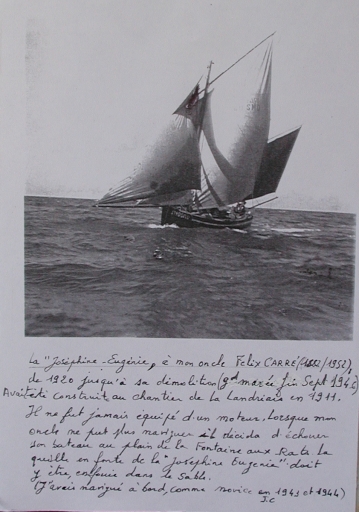 La "Joséphine-Eugénie", à mon oncle Félix CARRÉ (1882/1952),
de 1920 jusqu'à sa démolition (gd marée fin Sept 194
Avait été construit au chantier de la Landriais en 1911.
Il ne fut jamais équipé d'un moteur. Lorsque mon
oncle ne put plus naviguer il décida d'échouer
son bateau au plain de la Fontaine aux Rats la
quille en forte de la "Joséphine Eugénie" doit
y être enfouie dans le sable.
(J'avais navigué à bord, comme novice en 1943 et 1944)
J.C